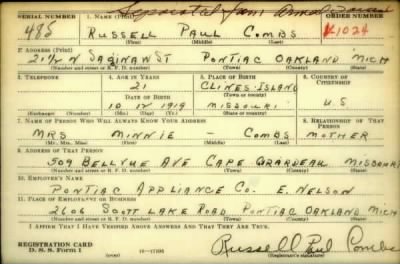 Separated from Armed Forces
SERIAL NUMBER 1. NAME (Print) ORDER NUMBER
485 RUSSELL PAUL COMBS K1024
(First) (Middle) (Last)
2. ADDRESS (Print)
21½ N SAGINAW ST PONTIAC OAKLAND MICH
(Number and street or R. F. D. number) (Town) (County) (State)
3. TELEPHONE 4. AGE IN YEARS 5. PLACE OF BIRTH 6. COUNTRY OF CITIZENSHIP
21 CLINES-ISLAND
DATE OF BIRTH (Town or county)
10 12 1919 MISSOURI U S
(Exchange) (Number) (Mo.) (Day) (Yr.) (State or country)
7. NAME OF PERSON WHO WILL ALWAYS KNOW YOUR ADDRESS 8. RELATIONSHIP OF THAT PERSON
MRS MINNIE - COMBS MOTHER
(Mr., Mrs., Miss) (First) (Middle) (Last)
9. ADDRESS OF THAT PERSON
509 BELLVUE AVE CAPE GIRARDEAU MISSOURI
(Number and street or R. F. D. number) (Town) (County) (State)
10. EMPLOYER'S NAME
PONTIAC APPLIANCE CO. E. NELSON
11. PLACE OF EMPLOYMENT OR BUSINESS
2606 SCOTT LAKE ROAD PONTIAC OAKLAND MICH
(Number and street or R. F. D. number) (Town) (County) (State)
I AFFIRM THAT I HAVE VERIFIED ABOVE ANSWERS AND THAT THEY ARE TRUE.
REGISTRATION CARD
D. S. S. Form 1 Russell Paul Combs
(Registrant's signature)